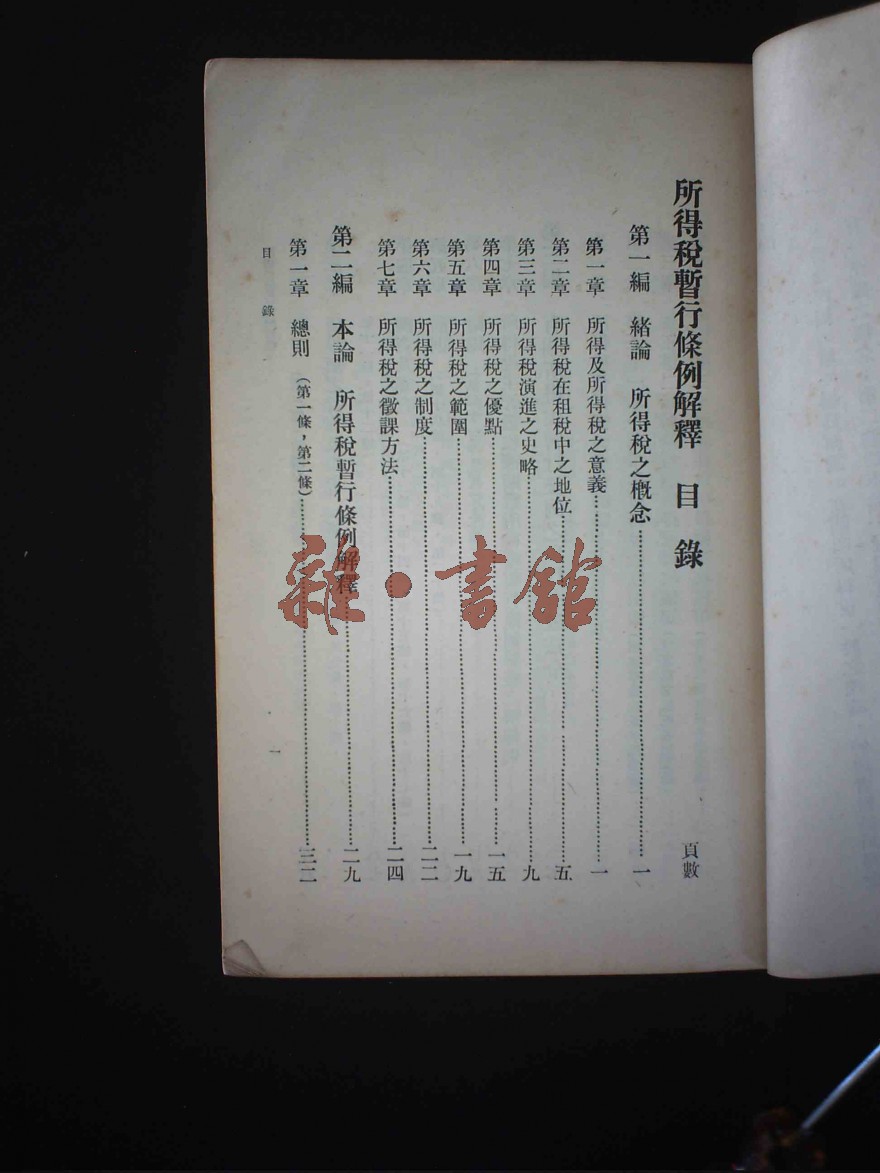 所得稅暫行條例解釋 目錄 頁數
第一編 緒論 所得稅之概念……一
第一章 所得及所得稅之意義……一
第二章 所得稅在租稅中之地位……五
第三章 所得稅演進之史略……九
第四章 所得稅之優點……一五
第五章 所得稅之範圍……一九
第六章 所得稅之制度……二二
第七章 所得稅之徵課方法……二四
第二編 本論 所得稅暫行條例解釋……二九
第一章 總則(第一條,第二條)……三二
目錄 一
雜·書館